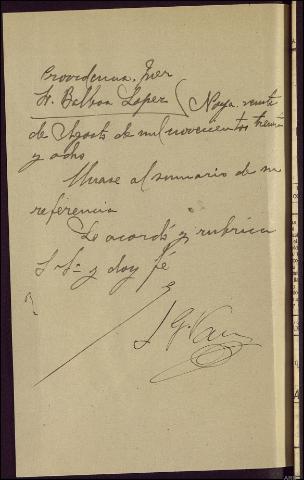 Providencia. Juez
Sr. Balboa Lopez } Noya veinte
de Agosto de mil novecientos treinta
y ocho
Unase al sumario de su
referencia
Lo acordó y rubrica
S. Sª y doy fé